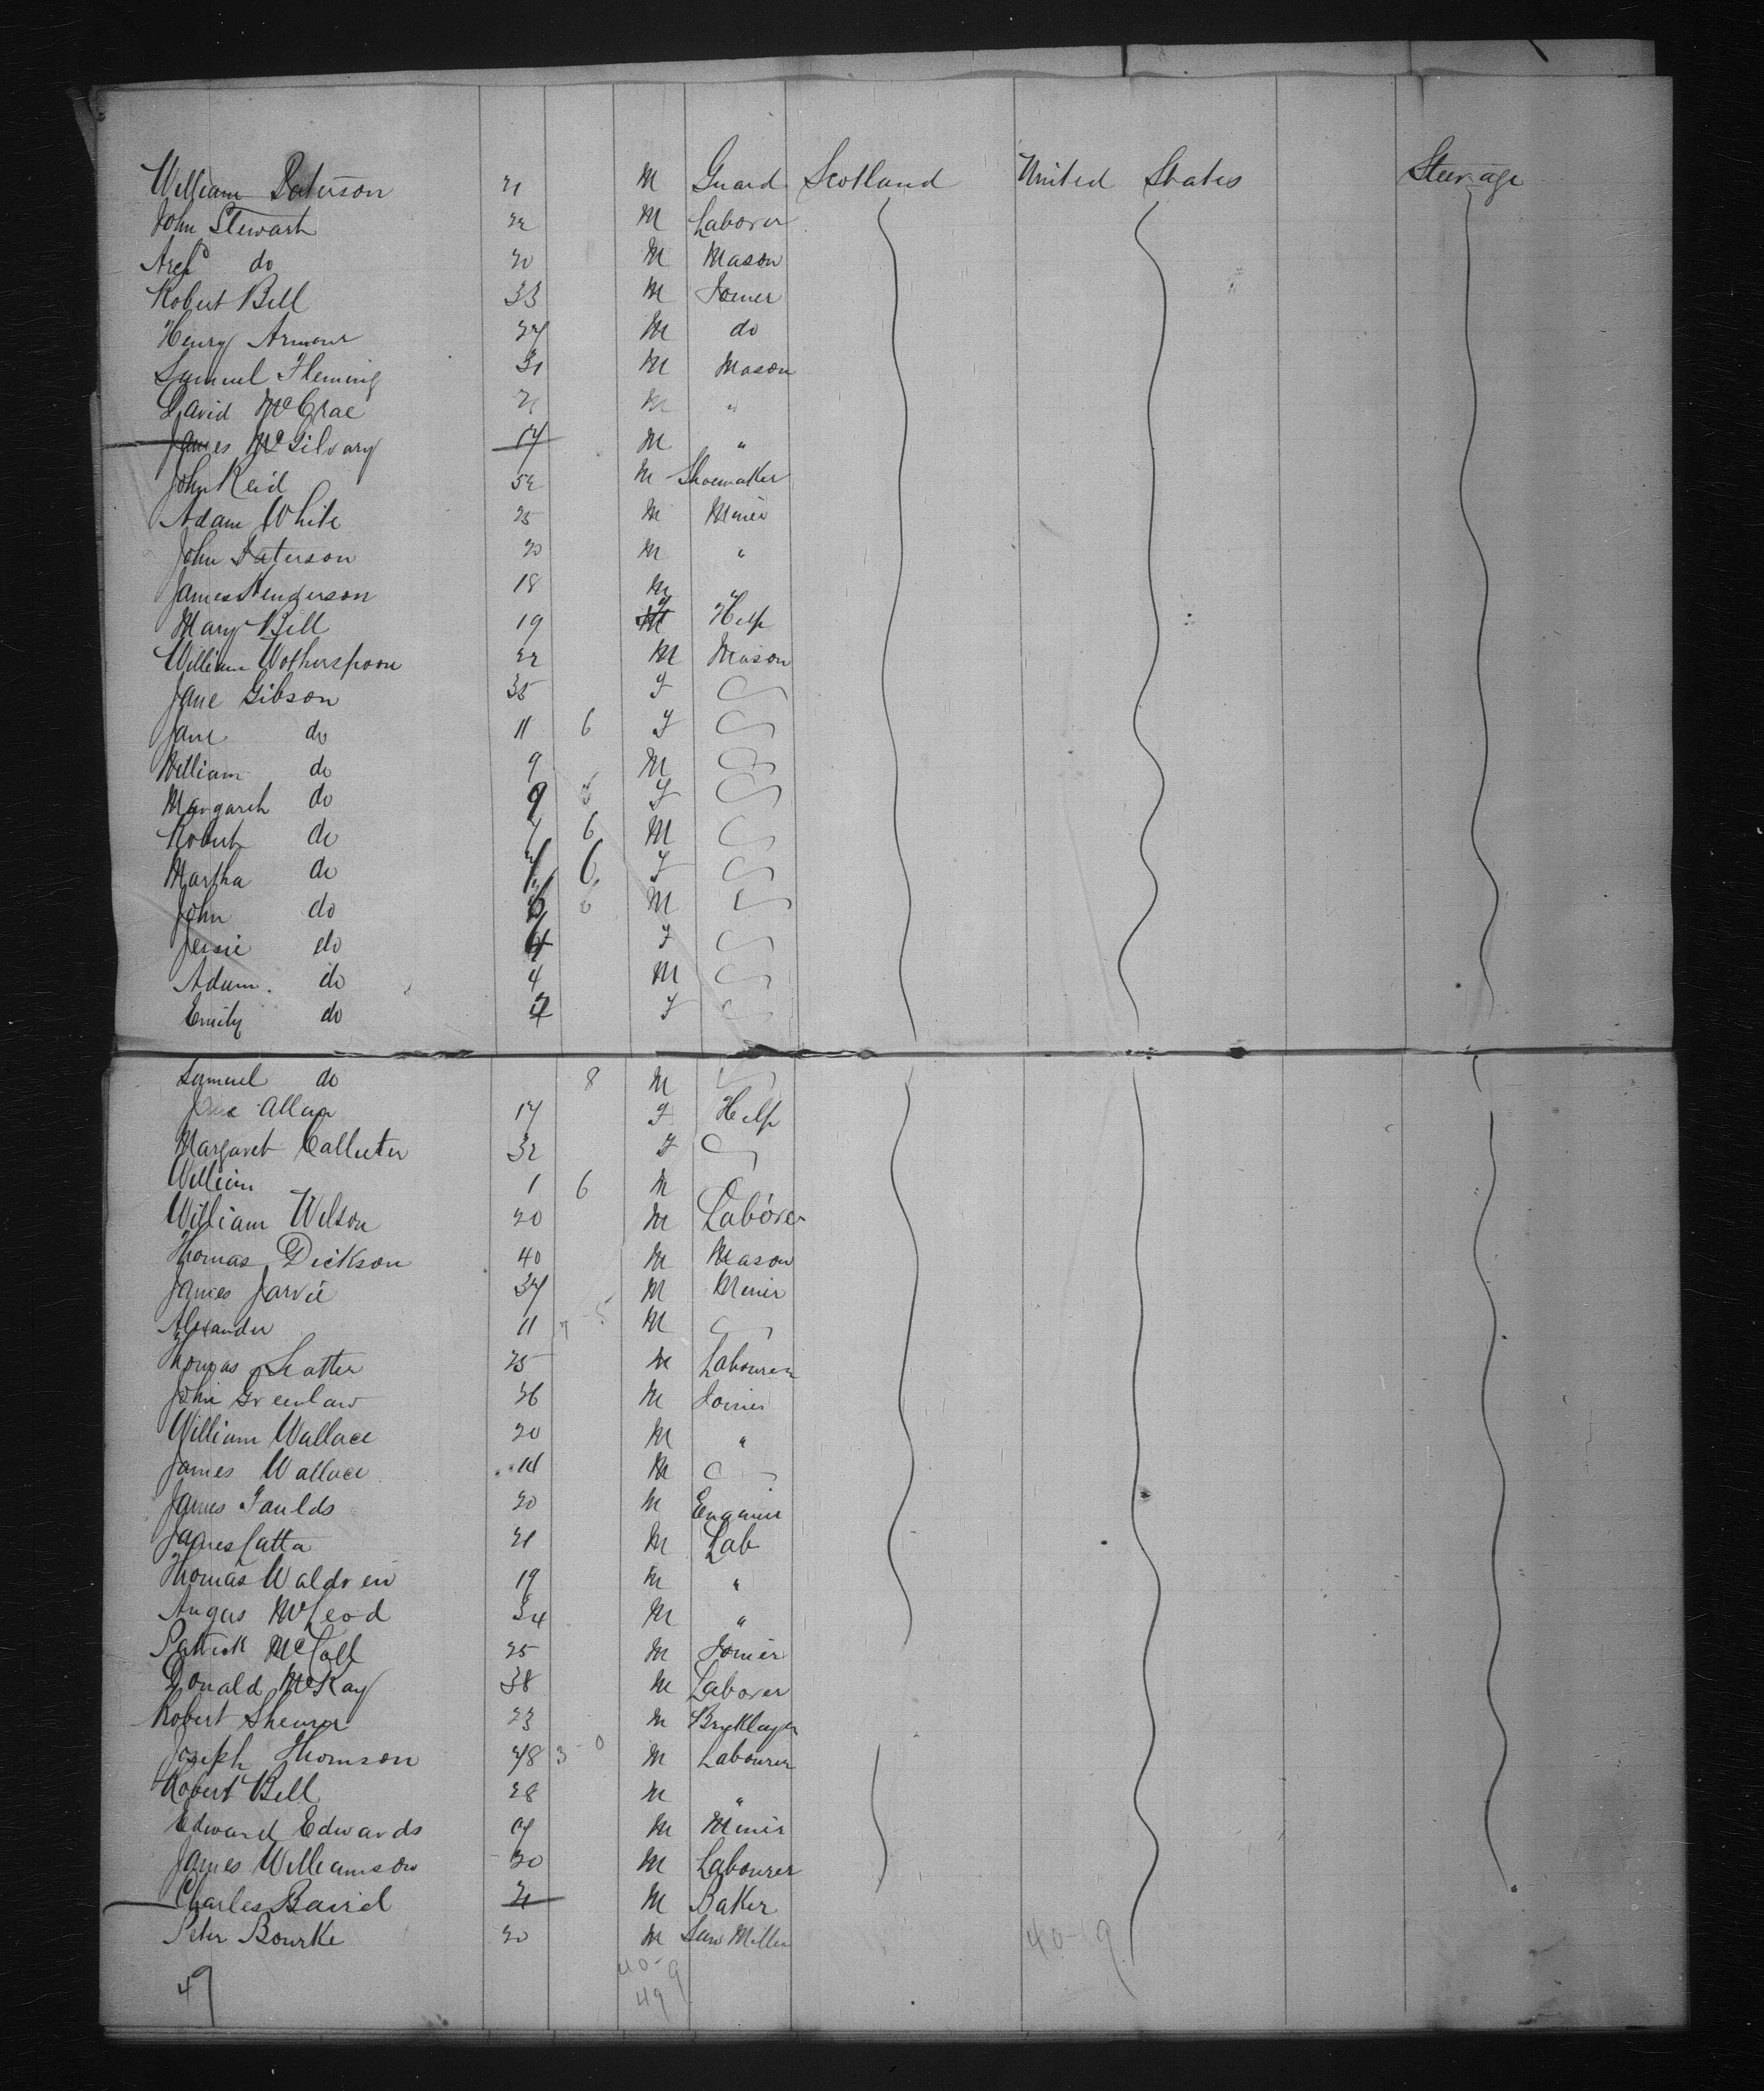 William Paterson 21 M Guard Scotland United States Steerage
John Stewart 22 M Laborer
Archd do 20 M Mason
Robert Bell 33 M Joiner
Henry Armour 27 M do
Samuel Fleming 31 M Mason
David McCrae 21 M "
James McGilvary 17 M "
John Reid 52 M Shoemaker
Adam White 25 M Miner
John Paterson 20 M "
James Henderson 18 M "
Mary Bell 19 F Help
William Wotherspoon 22 M Mason
Jane Gibson 35 F
Jane do 11 6 F
William do 9 M
Margaret do 9 F
Robert do 7 6 M
Martha do 7 6 F
John do 6 M
Jessie do 4 F
Adam do 4 M
Emily do 2 F
Samuel do 8 M
Allan 17 F Help
Margaret 32 F
William 1 6 M
William Wilson 20 M Laborer
Thomas Dickson 40 M Mason
James Jarvie 37 M Miner
Alexander 11 M
Thomas 25 M Labourer
John Greenlaw 26 M Joiner
William Wallace 20 M "
James Wallace 14 M
James Faulds 20 M Enginer
James Latta 21 M Lab
Thomas Waldren 19 M "
Angus McLeod 34 M "
Patrick McCall 25 M Joiner
Donald McKay 38 M Laborer
Robert Shearer 23 M Bryklayer
Joseph Thomson 48 3-0 M Labourer
Robert Bell 28 M "
Edward Edwards M Miner
James Williamson 30 M Labourer
Charles Baird 21 M Baker
Peter Bourke 20 M Saw Miller
40-9 40-9
49 49